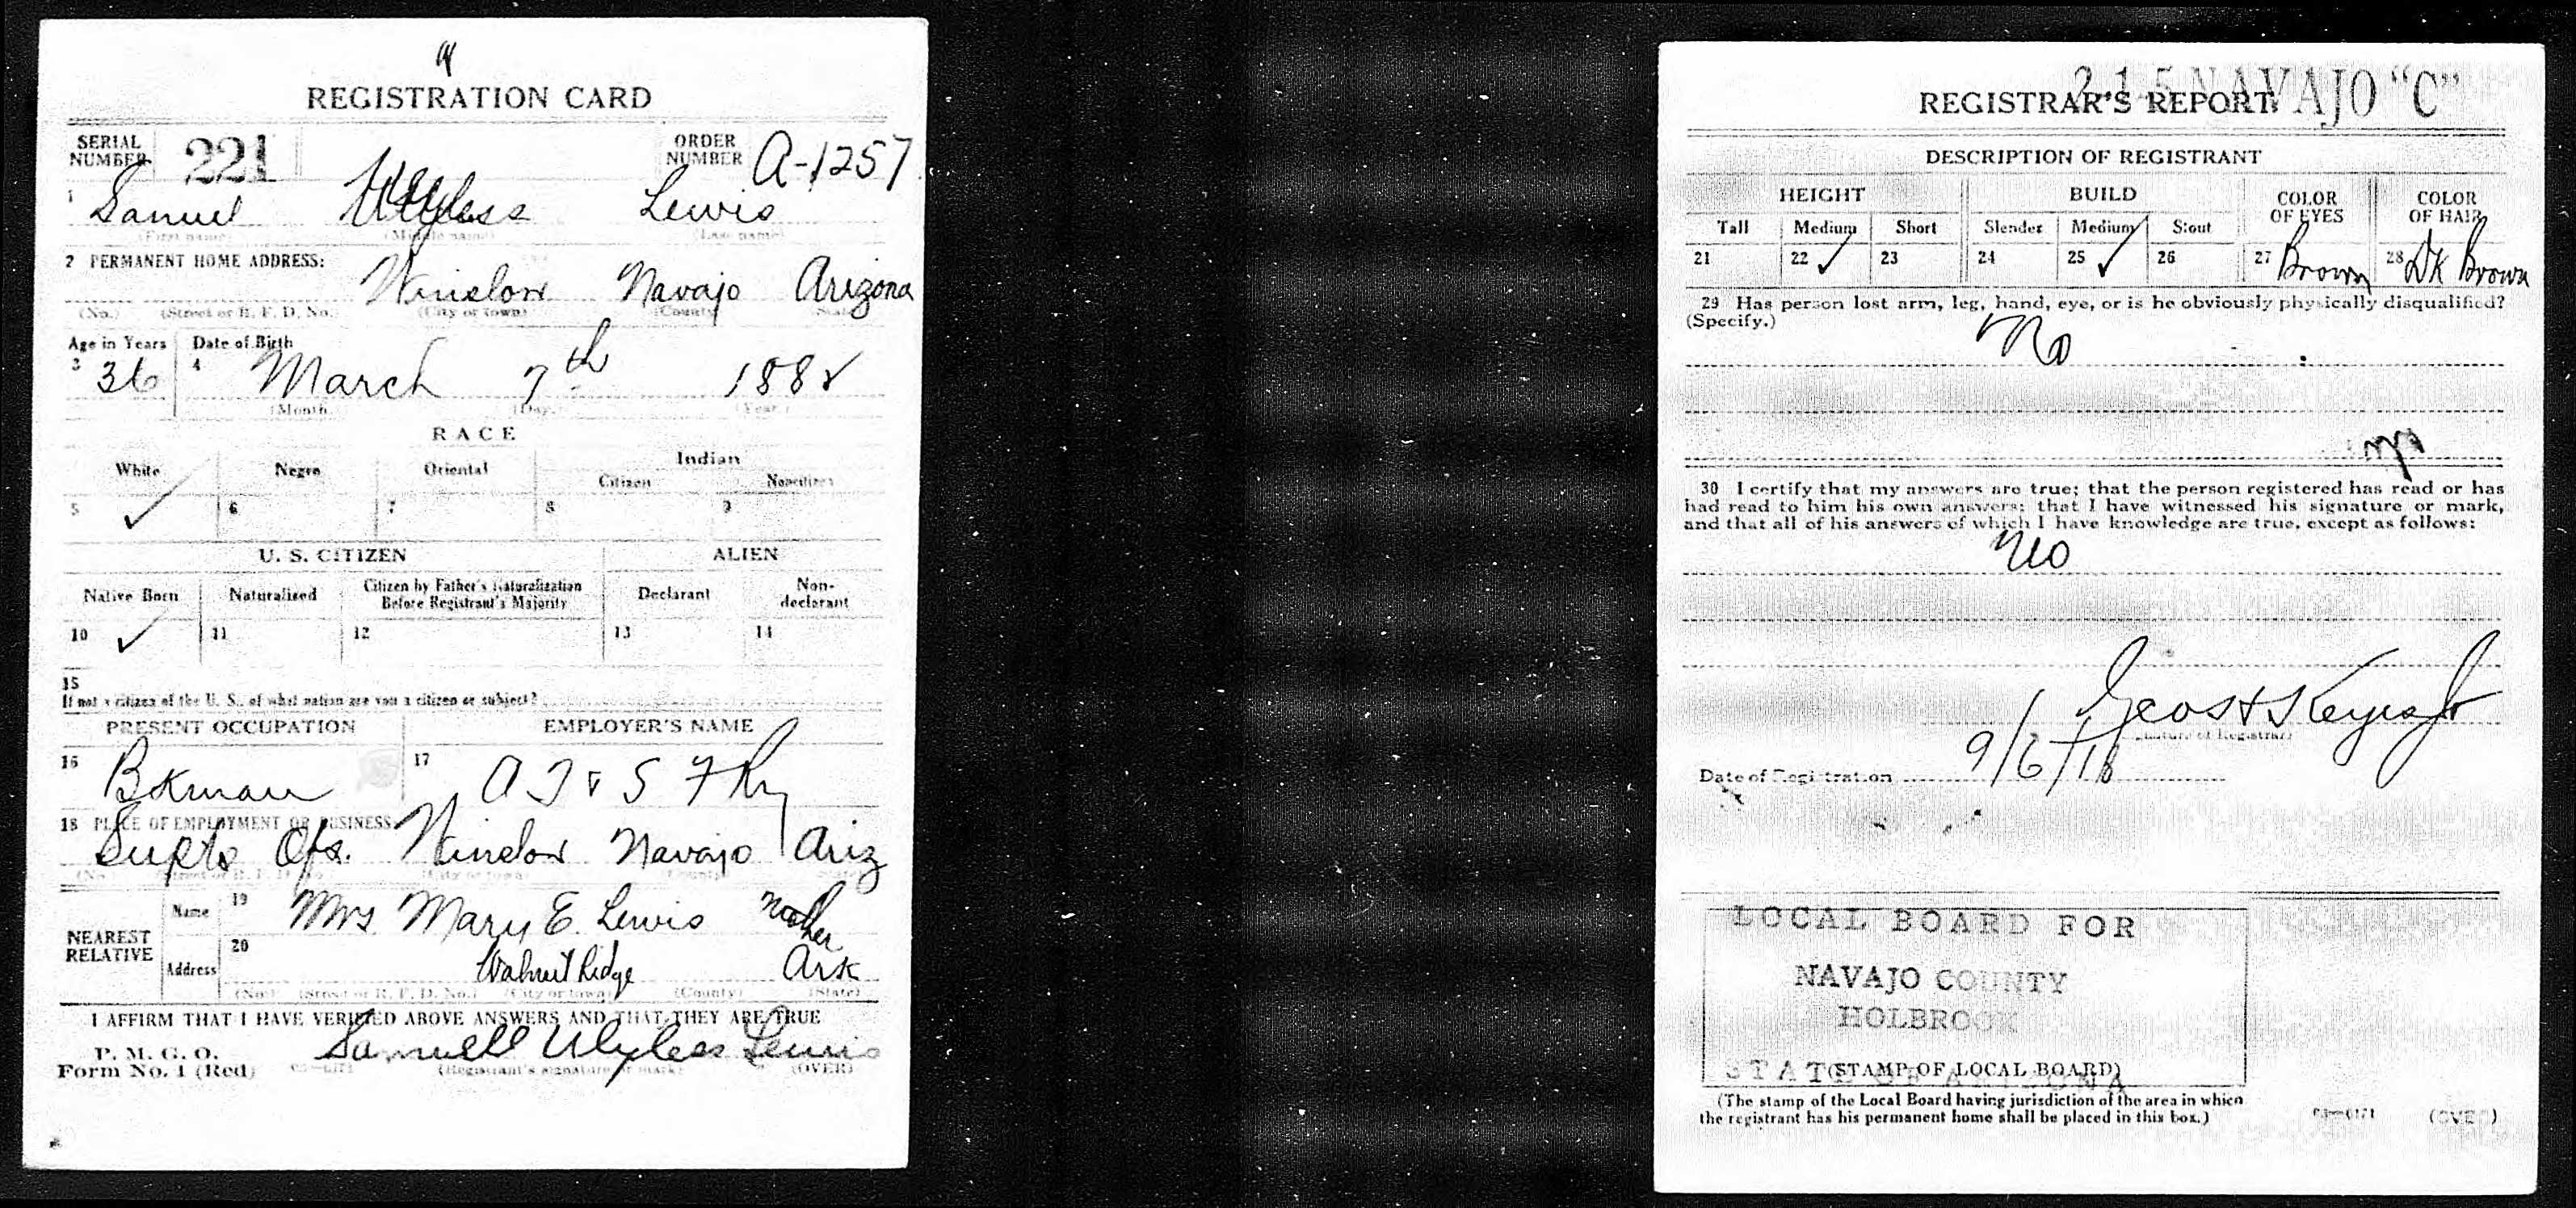 REGISTRATION CARD
SERIAL NUMBER 221 ORDER NUMBER A-1257
1 Samuel Ulyless Lewis
(First name) (Middle name) (Last name)
2 PERMANENT HOME ADDRESS:
Winslow Navajo Arizona
(No.) (Street or R. F. D. No.) (City or town) (County) (State)
Age in Years Date of Birth
3 36 4 March 7th 1882
(Month.) (Day.) (Year.)
RACE
White Negro Oriental Indian
Citizen Noncitizen
5 ✓ 6 7 8 9
U. S. CITIZEN ALIEN
Native Born Naturalized Citizen by Father's Naturalization Before Registrant's Majority Declarant Non-declarant
10 ✓ 11 12 13 14
15
If not a citizen of the U. S., of what nation are you a citizen or subject?
PRESENT OCCUPATION EMPLOYER'S NAME
16 Bkman 17 A T & S F Ry
18 PLACE OF EMPLOYMENT OR BUSINESS:
Supts Ofs. Winslow Navajo Ariz
(No.) (Street or R. F. D. No.) (City or town) (County) (State)
NEAREST RELATIVE
Name 19 Mrs Mary E. Lewis Mother
Address 20 Walnut Ridge Ark
(No.) (Street or R. F. D. No.) (City or town) (County) (State)
I AFFIRM THAT I HAVE VERIFIED ABOVE ANSWERS AND THAT THEY ARE TRUE
P. M. G. O.
Form No. 1 (Red) 03—6171 Samuell Ulyless Lewis
(Registrant's signature or mark) (OVER)
2 1 5 NAVAJO "C"
REGISTRAR'S REPORT
DESCRIPTION OF REGISTRANT
HEIGHT BUILD COLOR OF EYES COLOR OF HAIR
Tall Medium Short Slender Medium Stout
21 22 ✓ 23 24 25 ✓ 26 27 Brown 28 Dk Brown
29 Has person lost arm, leg, hand, eye, or is he obviously physically disqualified?
(Specify.)
No
30 I certify that my answers are true; that the person registered has read or has
had read to him his own answers; that I have witnessed his signature or mark,
and that all of his answers of which I have knowledge are true, except as follows:
no
(Signature of Registrar)
Date of Registration 9/6/18
LOCAL BOARD FOR
NAVAJO COUNTY
HOLBROOK
STATE OF ARIZONA
(STAMP OF LOCAL BOARD)
(The stamp of the Local Board having jurisdiction of the area in which
the registrant has his permanent home shall be placed in this box.)
03—6171 (OVER)